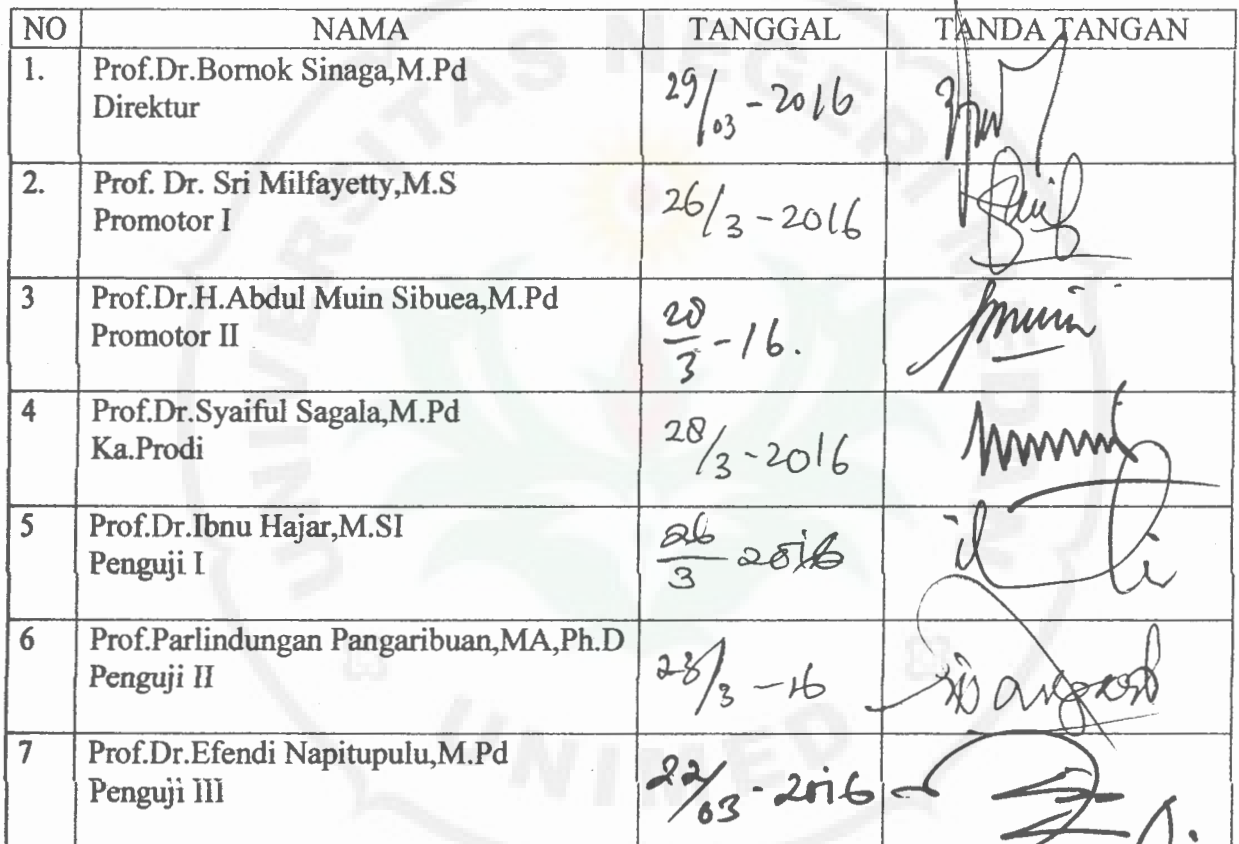 NO NAMA TANGGAL TANDA TANGAN
1. Prof.Dr.Bornok Sinaga,M.Pd
Direktur
29/03 - 2016
2. Prof. Dr. Sri Milfayetty,M.S
Promotor I
26/3 - 2016
3 Prof.Dr.H.Abdul Muin Sibuea,M.Pd
Promotor II
28/3 - 16.
4 Prof.Dr.Syaiful Sagala,M.Pd
Ka.Prodi
28/3 - 2016
5 Prof.Dr.Ibnu Hajar,M.SI
Penguji I
26/3 2016
6 Prof.Parlindungan Pangaribuan,MA,Ph.D
Penguji II
/3 - 16
7 Prof.Dr.Efendi Napitupulu,M.Pd
Penguji III
22/03 - 2016
UNIVERSITAS NEGERI MEDAN
UNIMED